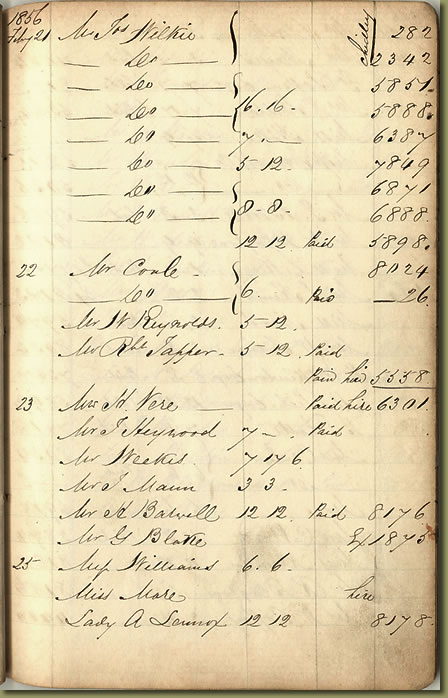 1856
Feby 21 Mr Jos Wilkie 282
Do 2342
Do 5851.
Do 16.16. 5888.
Do 7 — 6387
Do 5 12. 7849
Do 6871
Do 8-8- 6888.
12 12 Paid 5898.
22 Mr Coule 8024
Do 6. Paid 26.
Mr W Reynolds. 5 12
Mr Rbt Tapper. 5 12 Paid
Paid hire 5558
23 Mrs H Vere Paid hire 6301.
Mr J Heywood 7 — Paid
Mr Weekes. 7 17 6
Mr J Mann 3 3 -
Mr A Barwell 12 12 Paid 8176
Mr G Blake Ex 1875
25 Miss Williams 6. 6.
Miss More hire
Lady A Lennox 12 12 8178.